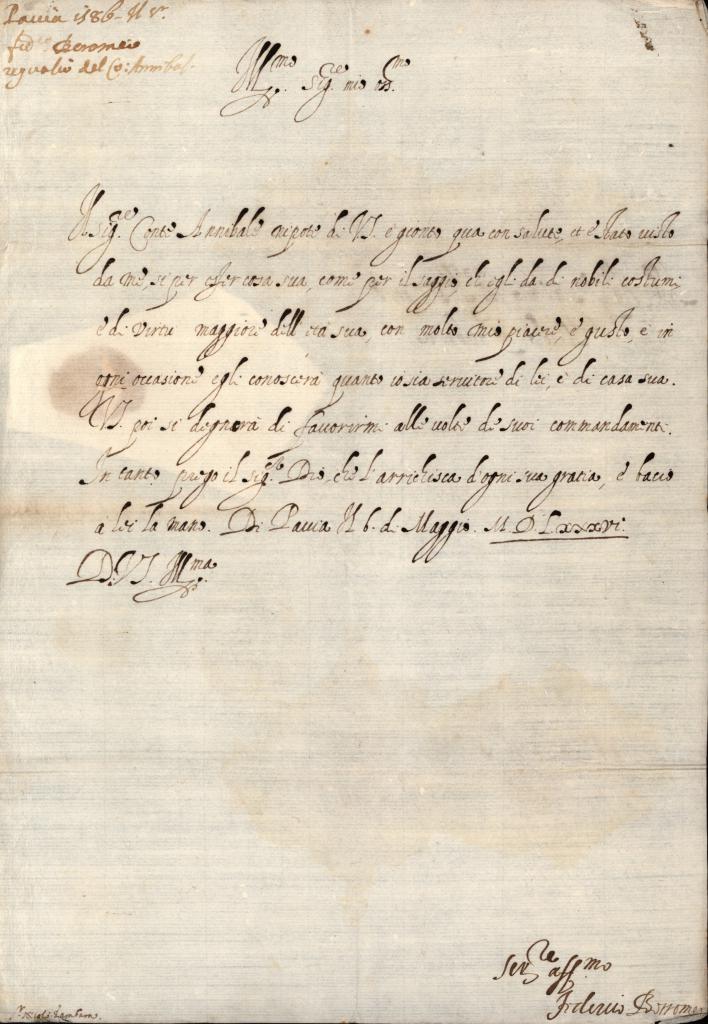 Pavia 1586
Fed.co Borromeo
del Co: Annibal
Ill.mo Sig.re mio oss.mo
Il Sig.re Conte Annibale nipote di V.S. è gionto qua con salute, et è stato visto
da me, si per esser cosa sua, come per il saggio, ch'egli da di nobili costumi,
e di virtu maggiore dell'età sua, con molto mio piacere, e gusto, e in
ogni occasione egli conoscerà quanto io sia servitore di lei, e di casa sua.
V.S. poi si degnerà di favorirmi alle volte de suoi commandamenti.
In tanto prego il Sig.re Dio, che l'arrichisca d'ogni sua gratia, e bacio
a lei la mano. Di Pavia Il 6. di Maggio. M.D.Lxxxvi.
D. V.S. Ill.ma
Ser.re aff.mo
Federico Borromeo